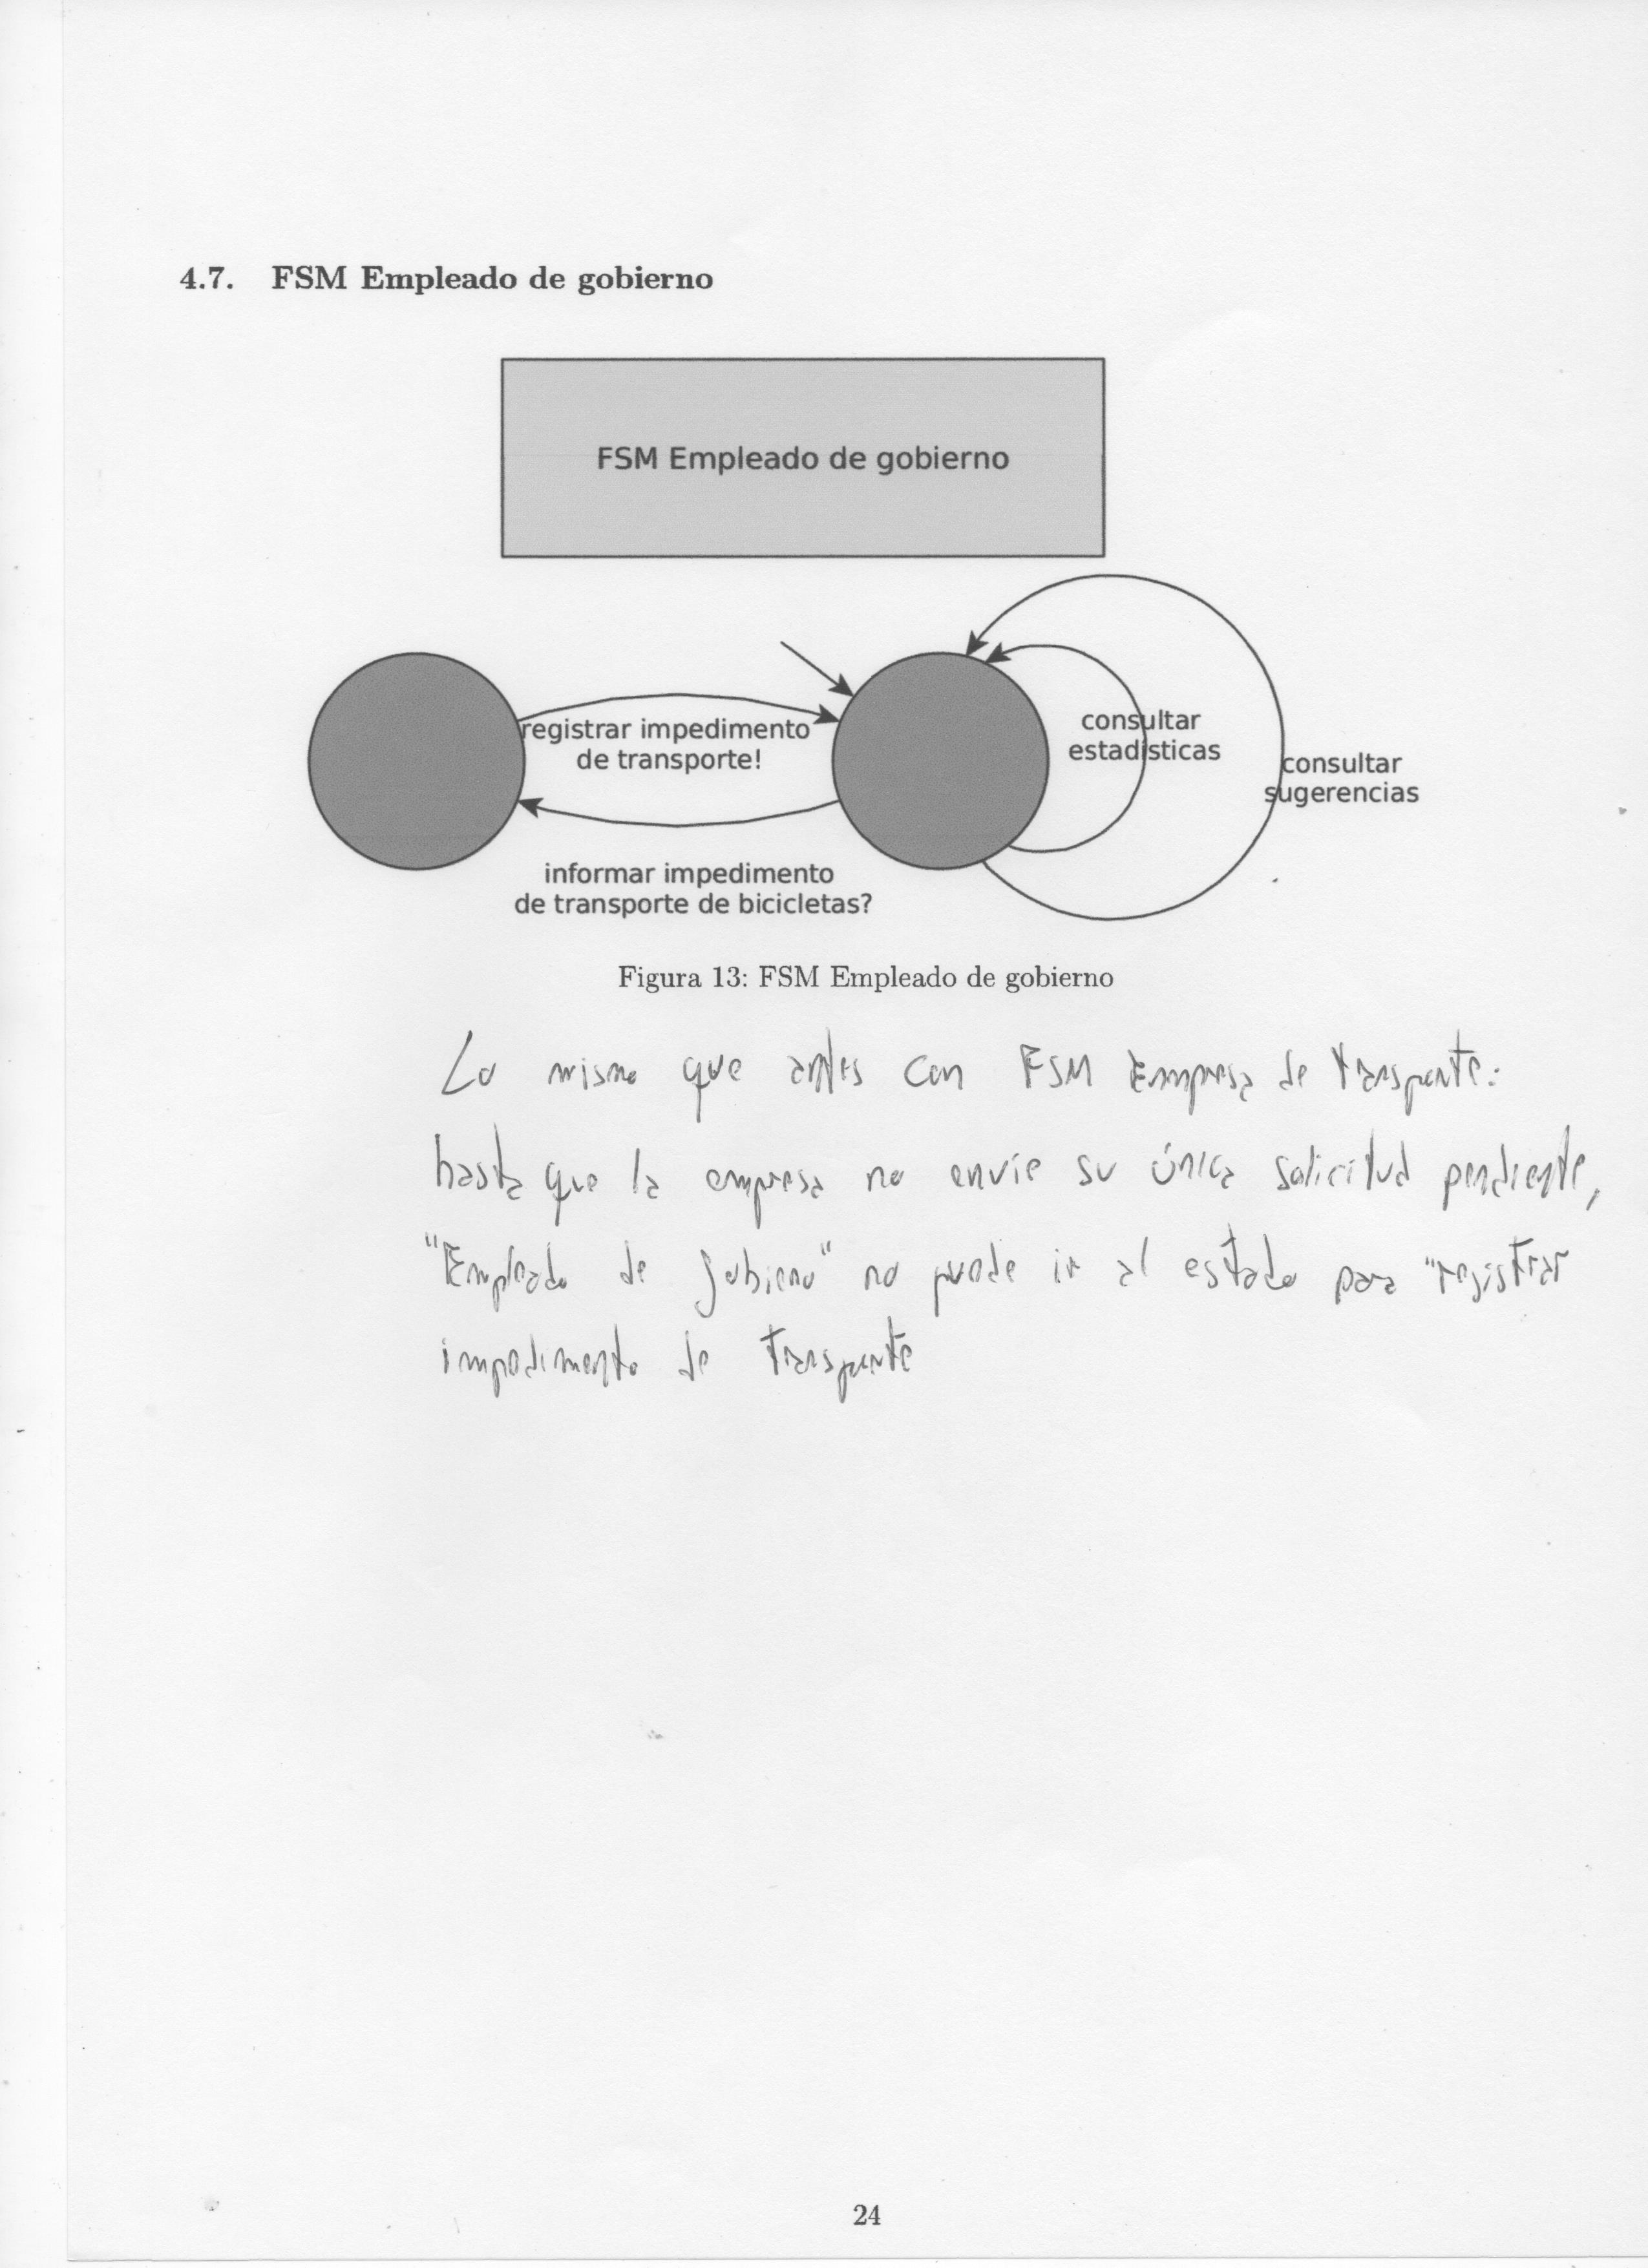 4.7. FSM Empleado de gobierno
FSM Empleado de gobierno
registrar impedimento
de transporte!
consultar
estadísticas
consultar
sugerencias
informar impedimento
de transporte de bicicletas?
Figura 13: FSM Empleado de gobierno
Lo mismo que antes con FSM Empresa de transporte:
hasta que la empresa no envíe su única solicitud pendiente,
"Empleado de gobierno" no puede ir al estado para "registrar
impedimento de transporte
24